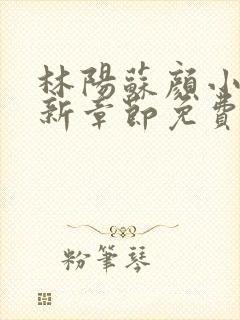 林陽蘇顏小
新章節免費
粉筆琴